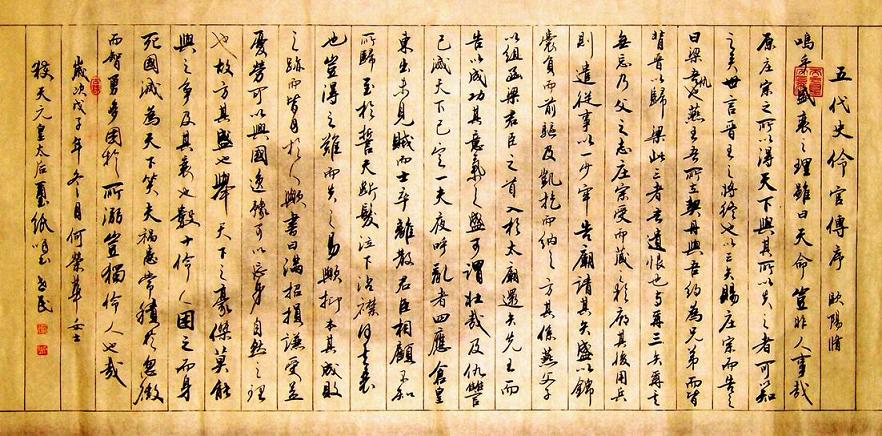 五代史伶官傳序 歐陽脩
嗚乎盛衰之理雖曰天命豈非人事哉
原莊宗之所以得天下與其所以失之者可以知
之矣世言晉王之將終也以三矢賜莊宗而告之
曰梁吾仇也燕王吾所立契丹與吾約為兄弟而皆
背晉以歸梁此三者吾遺恨也与爾三矢爾其
無忘乃父之志莊宗受而藏之於廟其後用兵
則遣從事以一少牢告廟請其矢盛以錦
囊負而前驅及凱旋而納之方其係燕父子
以組函梁君臣之首入於太廟還矢先王而
告以成功其意氣之盛可謂壯哉及仇讐
已滅天下已定一夫夜呼亂者四應倉皇
東出未見賊而士卒離散君臣相顧不知
所歸至於誓天斷髮泣下沾襟何其衰
也豈得之難而失之易歟抑本其成敗
之跡而皆自於人歟書曰滿招損謙受益
憂勞可以興國逸豫可以亡身自然之理
也故方其盛也舉天下之豪傑莫能
與之爭及其衰也數十伶人困之而身
死國滅為天下笑夫禍患常積於忽微
而智勇多困於所溺豈獨伶人也哉
歲次戊子年冬月何榮華女士
天元皇太后